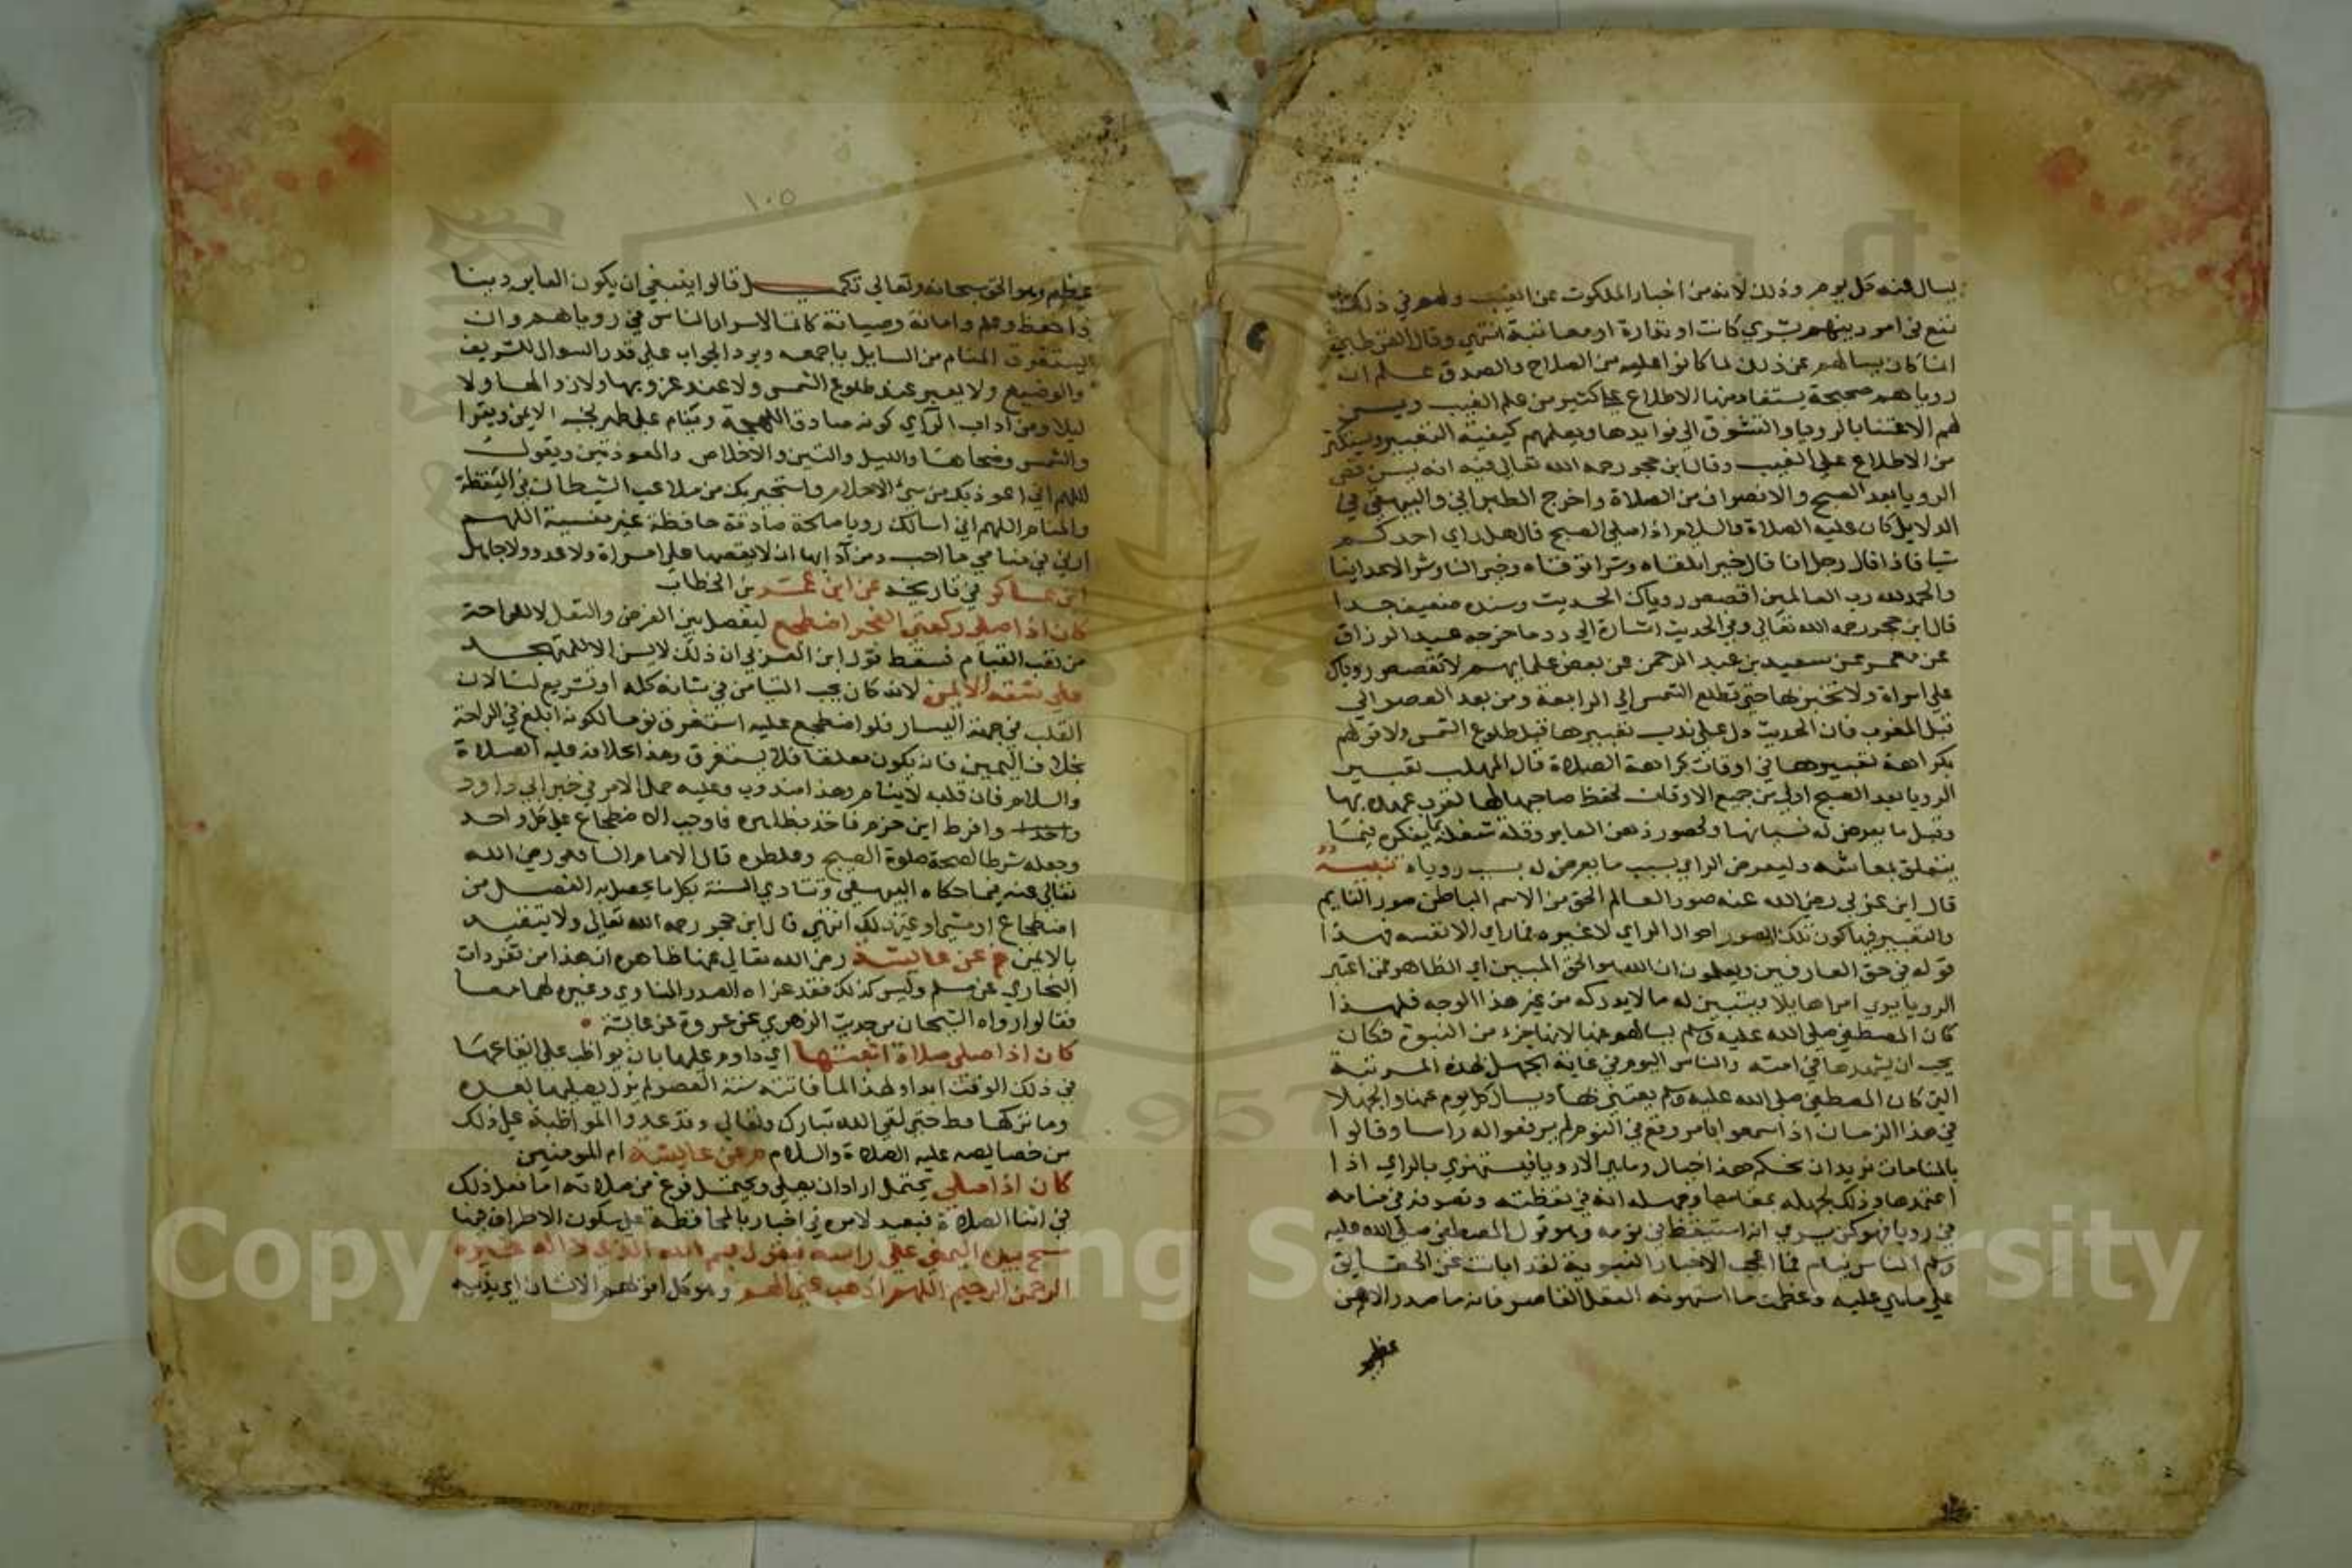 يسال عنه كل يوم وذلك لانه من اخبار الملكوت عن الغيب ولهم في ذلك
نفع في امور دينهم بشري كانت او نذارة او معاتبة انتهي وقال القرطبي
انما كان يسالهم عن ذلك لما كانوا عليه من الصلاح والصدق علم ان
روياهم صحيحة يستفاد منها الاطلاع علي كثير من علم الغيب ويسن
لهم الاعتنا بالرويا والتشوق الي فوايدها ويعلمهم كيفية التعبير ويستكثر
من الاطلاع علي الغيب وقال ابن حجر رحمه الله تعالي فيه انه يسن قص
الرويا بعد الصبح والانصراف من الصلاة واخرج الطبراني والبيهقي في
الدلايل كان عليه الصلاة والسلام اذا صلي الصبح قال هل راي احدكم
شيا فاذا قال رجل انا قال خيرا تلقاه وشرا توقاه وخير لنا وشر لاعداينا
والحمد لله رب العالمين اقصص روياك الحديث وسنده ضعيف جدا
قال ابن حجر رحمه الله تعالي وفي الحديث اشارة الي رد ما خرجه عبد الرزاق
عن معمر عن سعيد بن عبد الرحمن عن بعض علمايهم لا تقصص روياك
علي امراة ولا تخبر بها حتي تطلع الشمس الي الرابعة ومن بعد العصر الي
قبل المغرب فان الحديث دل علي ندب تعبيرها قبل طلوع الشمس ولا قولهم
بكراهة تعبيرها في اوقات كراهة الصلاة قال المهلب تعبير
الرويا بعد الصبح اولي من جميع الاوقات لحفظ صاحبها لها لقرب عهده بها
وقبل ما يعرض له نسيانها ولحضور ذهن العابر وقلة شغله بما يفكره فيما
يتعلق بمعاشه وليعرض الراي بسبب ما يعرض له بسبب روياه تنبيه
قال ابن عربي رضي الله عنه صور العالم الحق من الاسم الباطن صور النايم
والتعبير فيها كون تلك الصور احوال الراي لا غيره فما راي الا نفسه فهذا
قوله في حق العارفين ويعلمون ان الله هو الحق المبين اي الظاهر فمن اعتبر
الرويا يري امرا هايلا ويتبين له ما لا يدركه من غير هذا الوجه فلهذا
كان المصطفي صلي الله عليه وسلم يسالهم عنها لانها جزء من النبوة فكان
يحب ان يشهدها في امته والناس اليوم في غاية الجهل لهذه المرتبة
التي كان المصطفي صلي الله عليه وسلم يعتني بها ويسال كل يوم عنها والجهلا
في هذا الزمان اذا سمعوا بامر وقع في النوم لم يرفعوا له راسا وقالوا
بالمنامات نريد ان نحكم هذا خيال وما هي الا رويا فيستهزي بالراي اذا
اعتمدها وذلك لجهله بمقامها وجهله انه في يقظته وتصرفه في منامه
في رويا فهو كمن يري انه استيقظ في نومه وهو قول المصطفي صلي الله عليه
وسلم الناس نيام فما اعجب الاخبار النبوية لقد ابانت عن الحقايق
علي ما هي عليه وعظمت ما استهونه العقل القاصر فانه ما صدر الا من
عظيم
١٠٥
عظيم وهو الحق سبحانه وتعالي تكميل قالوا ينبغي ان يكون العابر دينا
ذا حفظ وعلم وامانة وصيانة كاتما لاسرار الناس في روياهم وان
يستغرق المنام من السايل باجمعه ويرد الجواب علي قدر السوال للشريف
والوضيع ولا يعبر عند طلوع الشمس ولا عند غروبها ولا زوالها ولا
ليلا ومن اداب الراي كونه صادق اللهجة وينام علي طهر لجنبه الايمن ويقرا
والشمس وضحاها والليل والتين والاخلاص والمعوذتين ويقول
اللهم اني اعوذ بك من سئ الاحلام واستجير بك من ملاعب الشيطان في اليقظة
والمنام اللهم اني اسالك رويا صالحة صادقة حافظة غير منسية اللهم
ارني في منامي ما احب ومن آدابها ان لا يقصها علي امراة ولا عدو ولا جاهل
ابن عساكر في تاريخه عن ابن عمر بن الخطاب
كان اذا صلي ركعتي الفجر اضطجع ليفصل بين الفرض والنفل لا للراحة
من تعب القيام فسقط قول ابن العربي ان ذلك لا يسن الا للمتهجد
علي شقه الايمن لانه كان يحب التيامن في شانه كله او تشريع لنا لان
القلب في جهة اليسار فلو اضطجع عليه استغرق نوما لكونه ابلغ في الراحة
بخلاف اليمين فانه يكون معلقا فلا يستغرق وهذا بخلافه عليه الصلاة
والسلام فان قلبه لا ينام وهذا مندوب وعليه حمل الامر في خبر ابي داود
واحد وافرط ابن حزم فاخذ بظاهره فاوجب الاضطجاع علي كل واحد
وجعله شرطا لصحة صلوة الصبح وغلطوه قال الامام الشافعي رضي الله
تعالي عنه فيما حكاه البيهقي وتتادي السنة بكل ما يحصل به الفصل من
اضطجاع او مشي او غير ذلك انتهي قال ابن حجر رحمه الله تعالي ولا يتقيد
بالايمن خ عن عايشة رضي الله تعالي عنها ظاهره ان هذا من تفردات
البخاري عن مسلم وليس كذلك فقد عزاه الصدر المناوي وغيره لهما معا
فقالوا رواه الشيخان من حديث الزهري عن عروة عن عايشة
كان اذا صلي صلاة اثبتها اي داوم عليها بان يواظب علي ايقاعها
في ذلك الوقت ابدا ولهذا لما فاتته سنة العصر لم يزل يصليها بعده
وما تركها قط حتي لقي الله تبارك وتعالي وقد عدوا المواظبة علي ذلك
من خصايصه عليه الصلاة والسلام م عن عايشة ام المومنين
كان اذا صلي يحتمل اراد ان يصلي ويحتمل فرغ من صلاته اما فعل ذلك
في اثنا الصلاة فبعيد لامره في اخبار بالمحافظة علي سكون الاطراف فيها
مسح بيده اليمني علي راسه ويقول بسم الله الذي لا اله غيره
الرحمن الرحيم اللهم اذهب عني الهم وهو كل امر يهم الانسان اي يذيبه
Copyright © King Saud University
1957